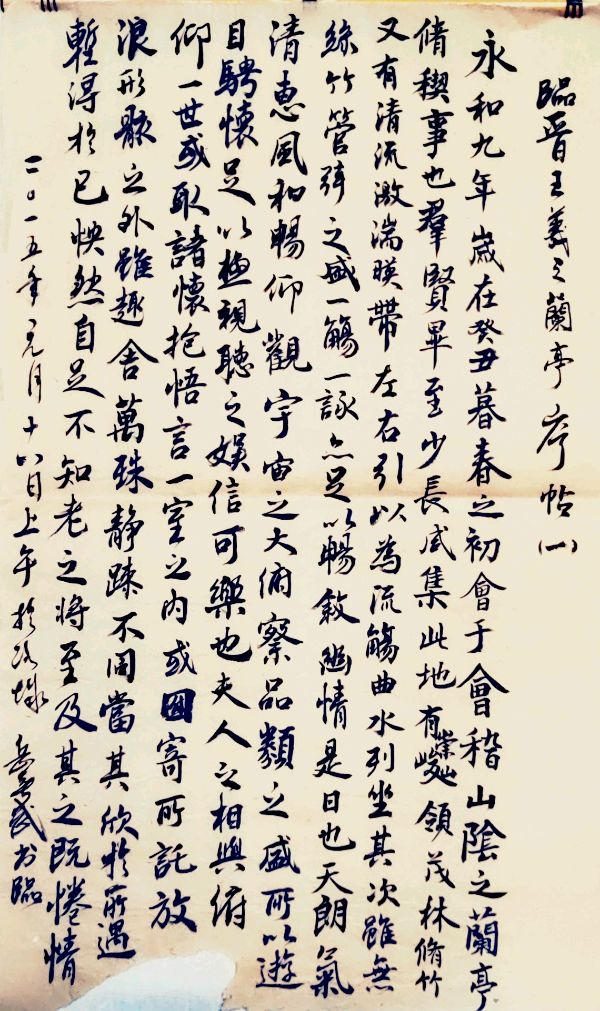 臨晉王羲之蘭亭序帖(一)
永和九年歲在癸丑暮春之初會于會稽山陰之蘭亭
脩稧事也羣賢畢至少長咸集此地有崇山峻領茂林脩竹
又有清流激湍暎帶左右引以為流觴曲水列坐其次雖無
絲竹管弦之盛一觴一詠亦足以暢敘幽情是日也天朗氣
清惠風和暢仰觀宇宙之大俯察品類之盛所以遊
目騁懷足以極視聽之娛信可樂也夫人之相與俯
仰一世或取諸懷抱悟言一室之內或因寄所託放
浪形骸之外雖趣舍萬殊靜躁不同當其欣於所遇
暫得於己怏然自足不知老之將至及其之既惓情
二〇一五年元月十八日上午於城武书臨